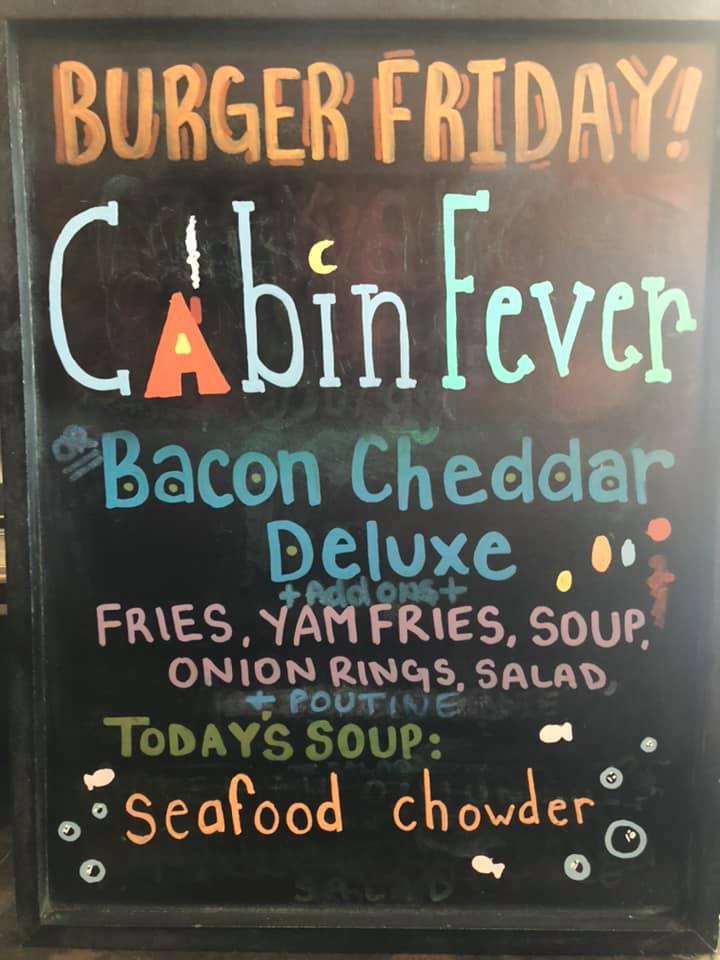 BURGER FRIDAY!
Cabin Fever
OR Bacon Cheddar
Deluxe
+Add ons+
FRIES, YAM FRIES, SOUP,
ONION RINGS, SALAD
+ POUTINE
TODAY'S SOUP:
seafood chowder
SALAD